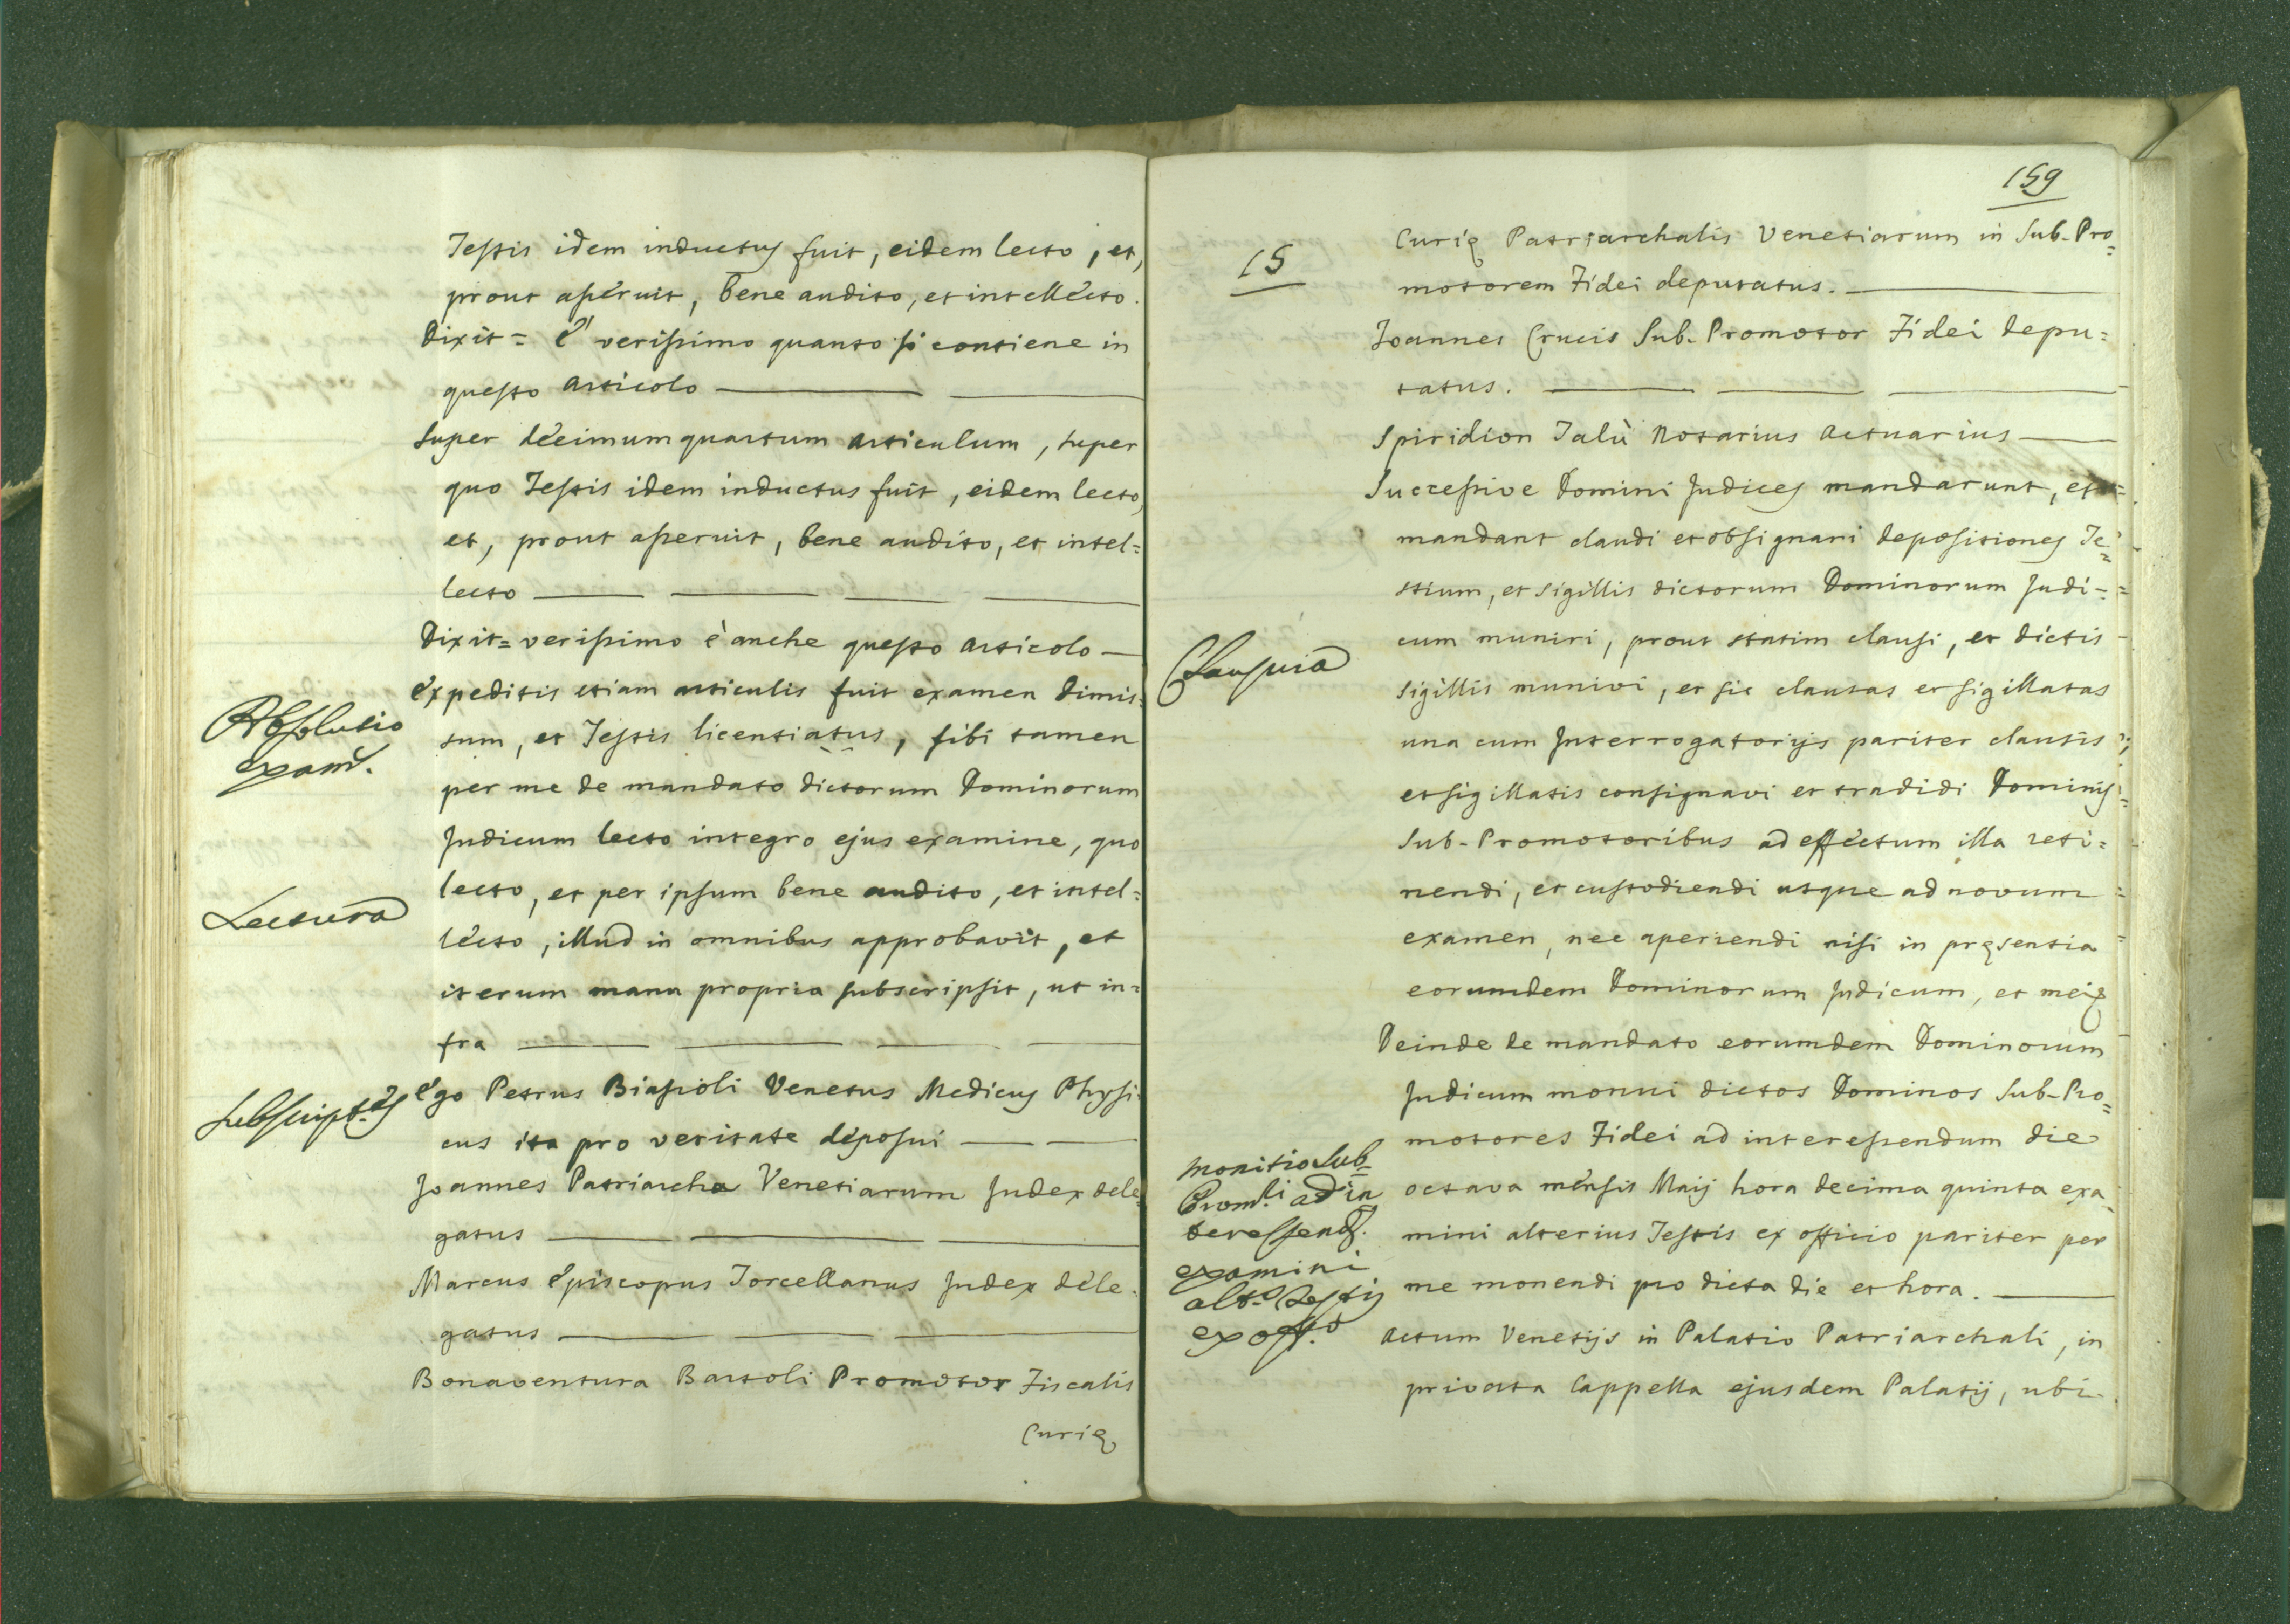 Testis idem inductus fuit, eidem lecto, et,
prout asseruit, bene audito, et intellecto.
Dixit = È verissimo quanto si contiene in
questo articolo
Super decimumquartum articulum, super
quo Testis idem inductus fuit, eidem lecto,
et, prout asseruit, bene audito, et intel=
lecto
Dixit = verissimo è anche questo articolo
Absolutio
exam.
Expeditis etiam articulis fuit examen dimis=
sum, et Testis licentiatus, sibi tamen
per me de mandato dictorum Dominorum
Judicum lecto integro ejus examine, quo
Lectura
lecto, et per ipsum bene audito, et intel=
lecto, illud in omnibus approbavit, et
iterum manu propria subscripsit, ut in=
fra
Ego Petrus Biasioli Venetus Medicus Physi=
cus ita pro veritate deposui
Joannes Patriarcha Venetiarum Judex dele
gatus
Marcus Episcopus Torcellanus Judex dele
gatus
Bonaventura Bartoli Promotor Fiscalis
Curię
159
15
Curię Patriarchalis Venetiarum in Sub-Pro=
motorem Fidei deputatus.
Joannes Crucis Sub-Promotor Fidei depu=
tatus.
Spiridion Talù Notarius Actuarius
Successive Domini Judices mandarunt, et
mandant claudi et obsignari depositiones Te=
stium, et sigillis dictorum Dominorum Judi-
cum muniri, prout statim clausi, et dictis
Clausura
sigillis munivi, et sic clausas et sigillatas
una cum Interrogatorijs pariter clausis
et sigillatis consignavi et tradidi Dominis
Sub-Promotoribus ad effectum illa reti=
nendi, et custodiendi usque ad novum
examen, nec aperiendi nisi in pręsentia
eorumdem Dominorum Judicum, et mei
Deinde de mandato eorumdem Dominorum
Judicum monui dictos Dominos Sub-Pro=
motores Fidei ad interessendum die
monitio Sub=
Prom.li ad in
teressend.
examini
alt.s Testis
ex off.o
octava mensis Maij hora decima quinta exa
mini alterius Testis ex officio pariter per
me monendi pro dicta die et hora.
Actum Venetijs in Palatio Patriarchali, in
privata Cappella ejusdem Palatij, ubi